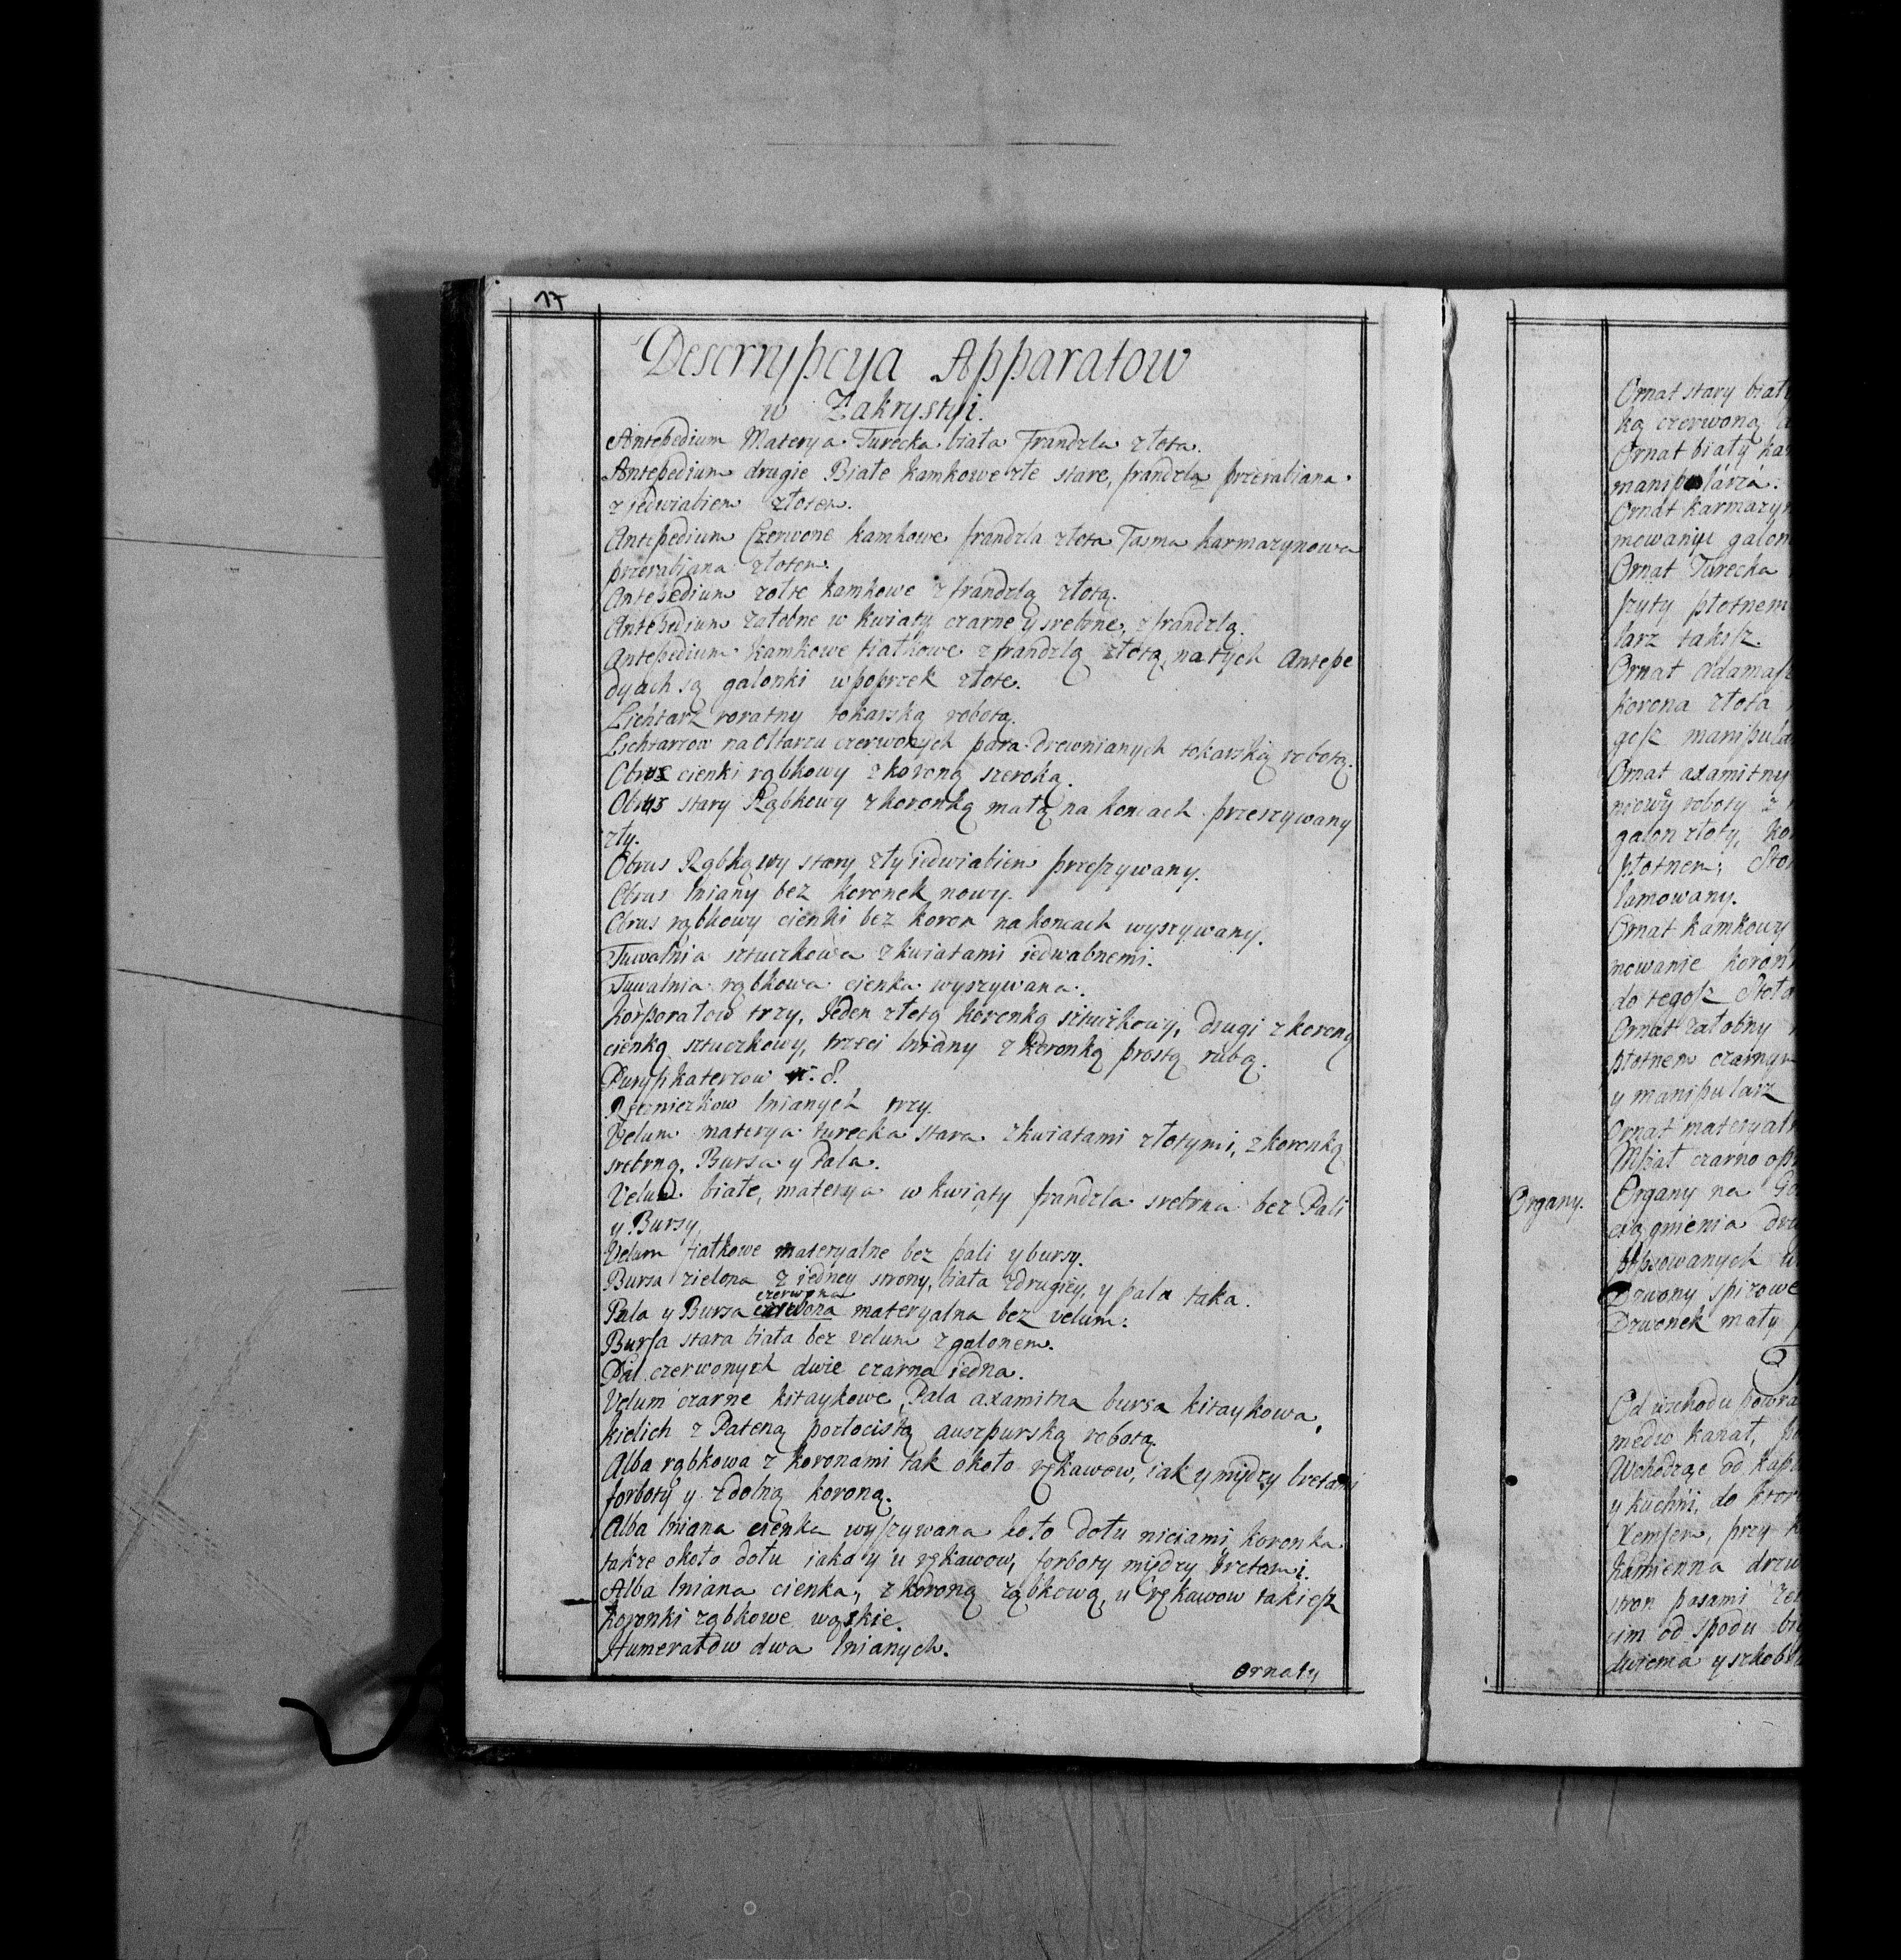 17
Descrypcya Apparatow
w Zakrystyi.
Antepedium Materya Turecka biała Frandzla złota.
Antepedium drugie Białe kamkowe złe stare, frandzla przerabiana
z jedwiabiem złotem.
Antepedium Czerwone kamkowe frandzla złota Tasma karmazynowa
przerabiana złotem.
Antepedium zołte kamkowe z frandzlą złotą.
Antepedium załobne w kwiaty czarne y srebrne, z frandzlą.
Antepedium kamkowe fiałkowe z frandzlą złotą, na tych Antepe
dyach są galonki w poprzek złote.
Lichtarz roratny tokarską robotą.
Lichtarzow na Ołtarzu czerwonych para drewnianych tokarską robotą.
Obrus cienki rąbkowy z koroną szeroką.
Obrus stary Rąbkowy z koronką małą na koncach przeszywany
zły.
Obrus Rąbkowy stary zły iedwiabiem przeszywany.
Obrus lniany bez koronek nowy.
Obrus rąbkowy cienki bez koron na koncach wyszywany.
Tuwalnia sztuczkowa z kwiatami iedwabnemi.
Tuwalnia rąbkowa cienka wyszywana.
Korporałow trzy, Jeden złotą koronką sztuczkowy, drugi z koroną
cienką sztuczkowy, trzeci lniany z koronką prostą rubą.
Puryfikaterzow 8.
Ręczniczkow lnianych trzy.
Velum materya turecka stara z kwiatami złotymi, z koronką
srebrną, Bursa y Pala.
Velum białe, materya w kwiaty frandzla srebrna bez Pali
y Bursy.
Velum fiałkowe materyalne bez pali y bursy.
Bursa zielona z iedney strony, biała z drugiey, y pala taka.
czerwona
Pala y Bursa czerwona materyalna bez velum.
Bursa stara biała bez velum z galonem.
Pal czerwonych dwie czarna iedna.
Velum czarne kitaykowe, Pala axamitna bursa kitaykowa,
kielich z Pateną pozłocistą auszpurską robotą.
Alba rąbkowa z koronami tak około rękawow, iak y między bretami
forboty y z dolną koroną.
Alba lniana cienka wyszywana koło dołu niciami, koronka
takze około dołu iako y u rękawow, forboty między bretami.
Alba lniana cienka, z koroną ząbkową, u rękawow takiesz
koronki ząbkowe wąskie.
Humerałow dwa lnianych.
Ornaty
Ornat stary biał
ką czerwoną
Ornat biały ka
manipularza.
Ornat karmazy
mowanye galon
Ornat Turecka
szyty płotnem
larz taksz.
Ornat Adamasz
korona złota
gosz manipula
Ornat axamitny
niowy roboty z
galon złoty, ko
płotnem; Sto
lamowany.
Ornat kamkowy
mowanie koron
do tegosz Stoł
Ornat załobny
płotnem czarnym
y manipularz
Ornat materyaln
Mszał czarno op
Organy.
Organy na
ciągnienia
popsowanych
Dzwony spizowe
Dzwonek mały
Od wschodu
medio kanał,
Wchodząc od
y kuchni, do
Xemsem, przy
kamienna drzw
stron pasami
cim od spodu
dwiema y szkob